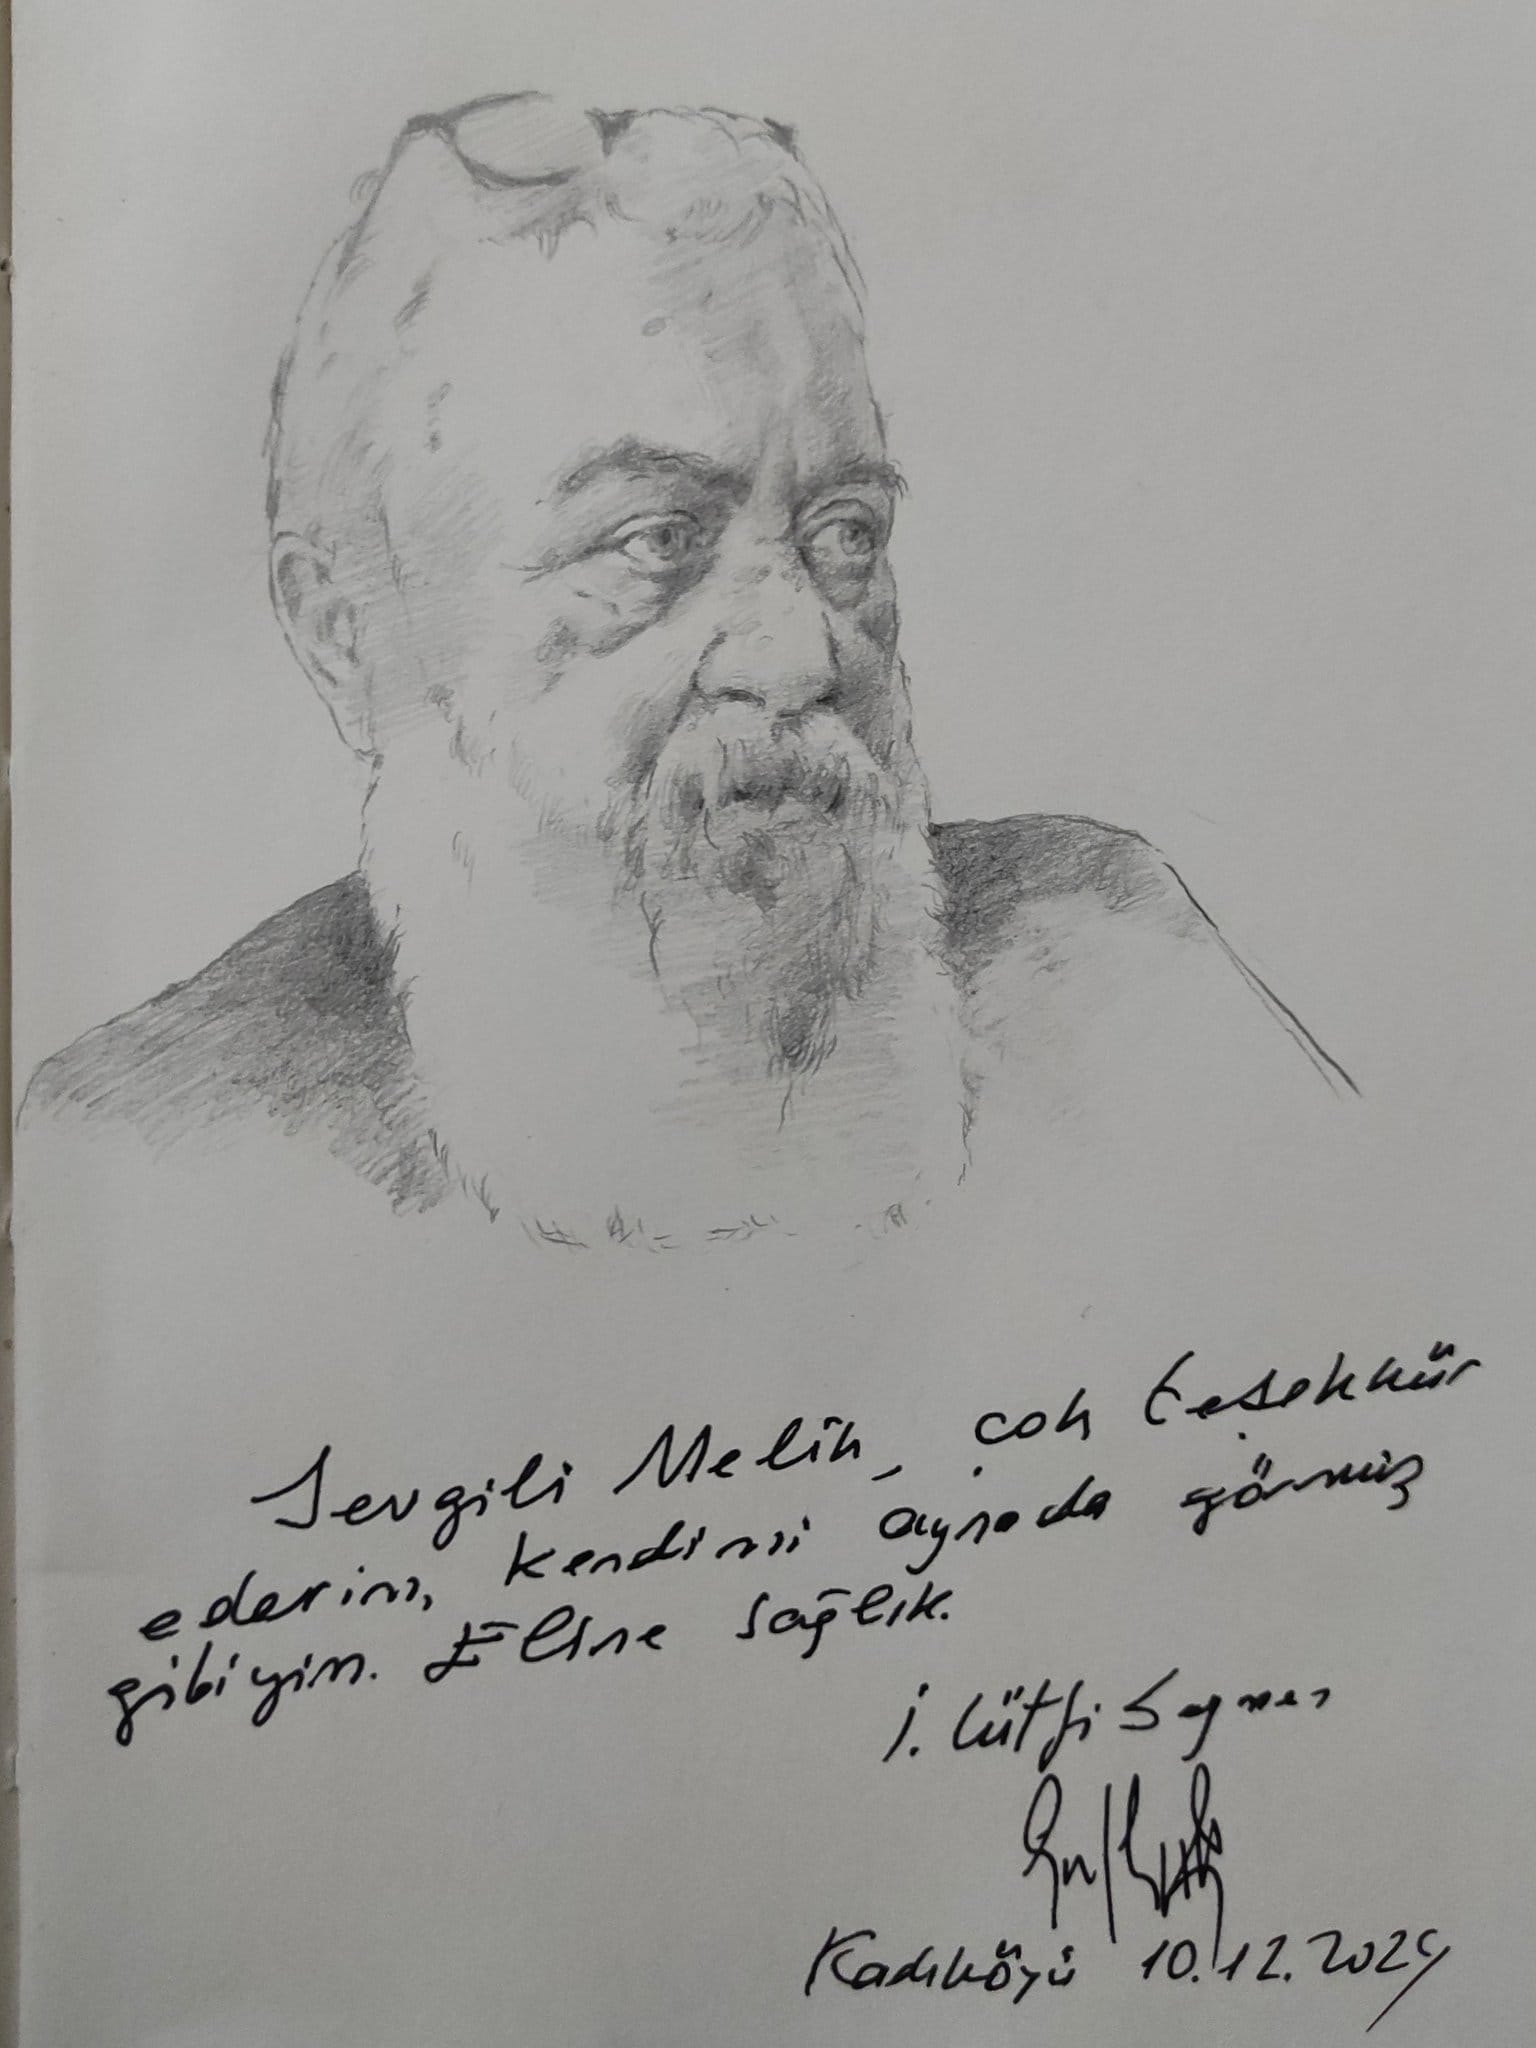 Sevgili Melih, çok teşekkür
ederim, kendimi aynada görmüş
gibiyim. Eline sağlık.
İ. Lütfi Seymen
Kadıköyü 10.12.2024